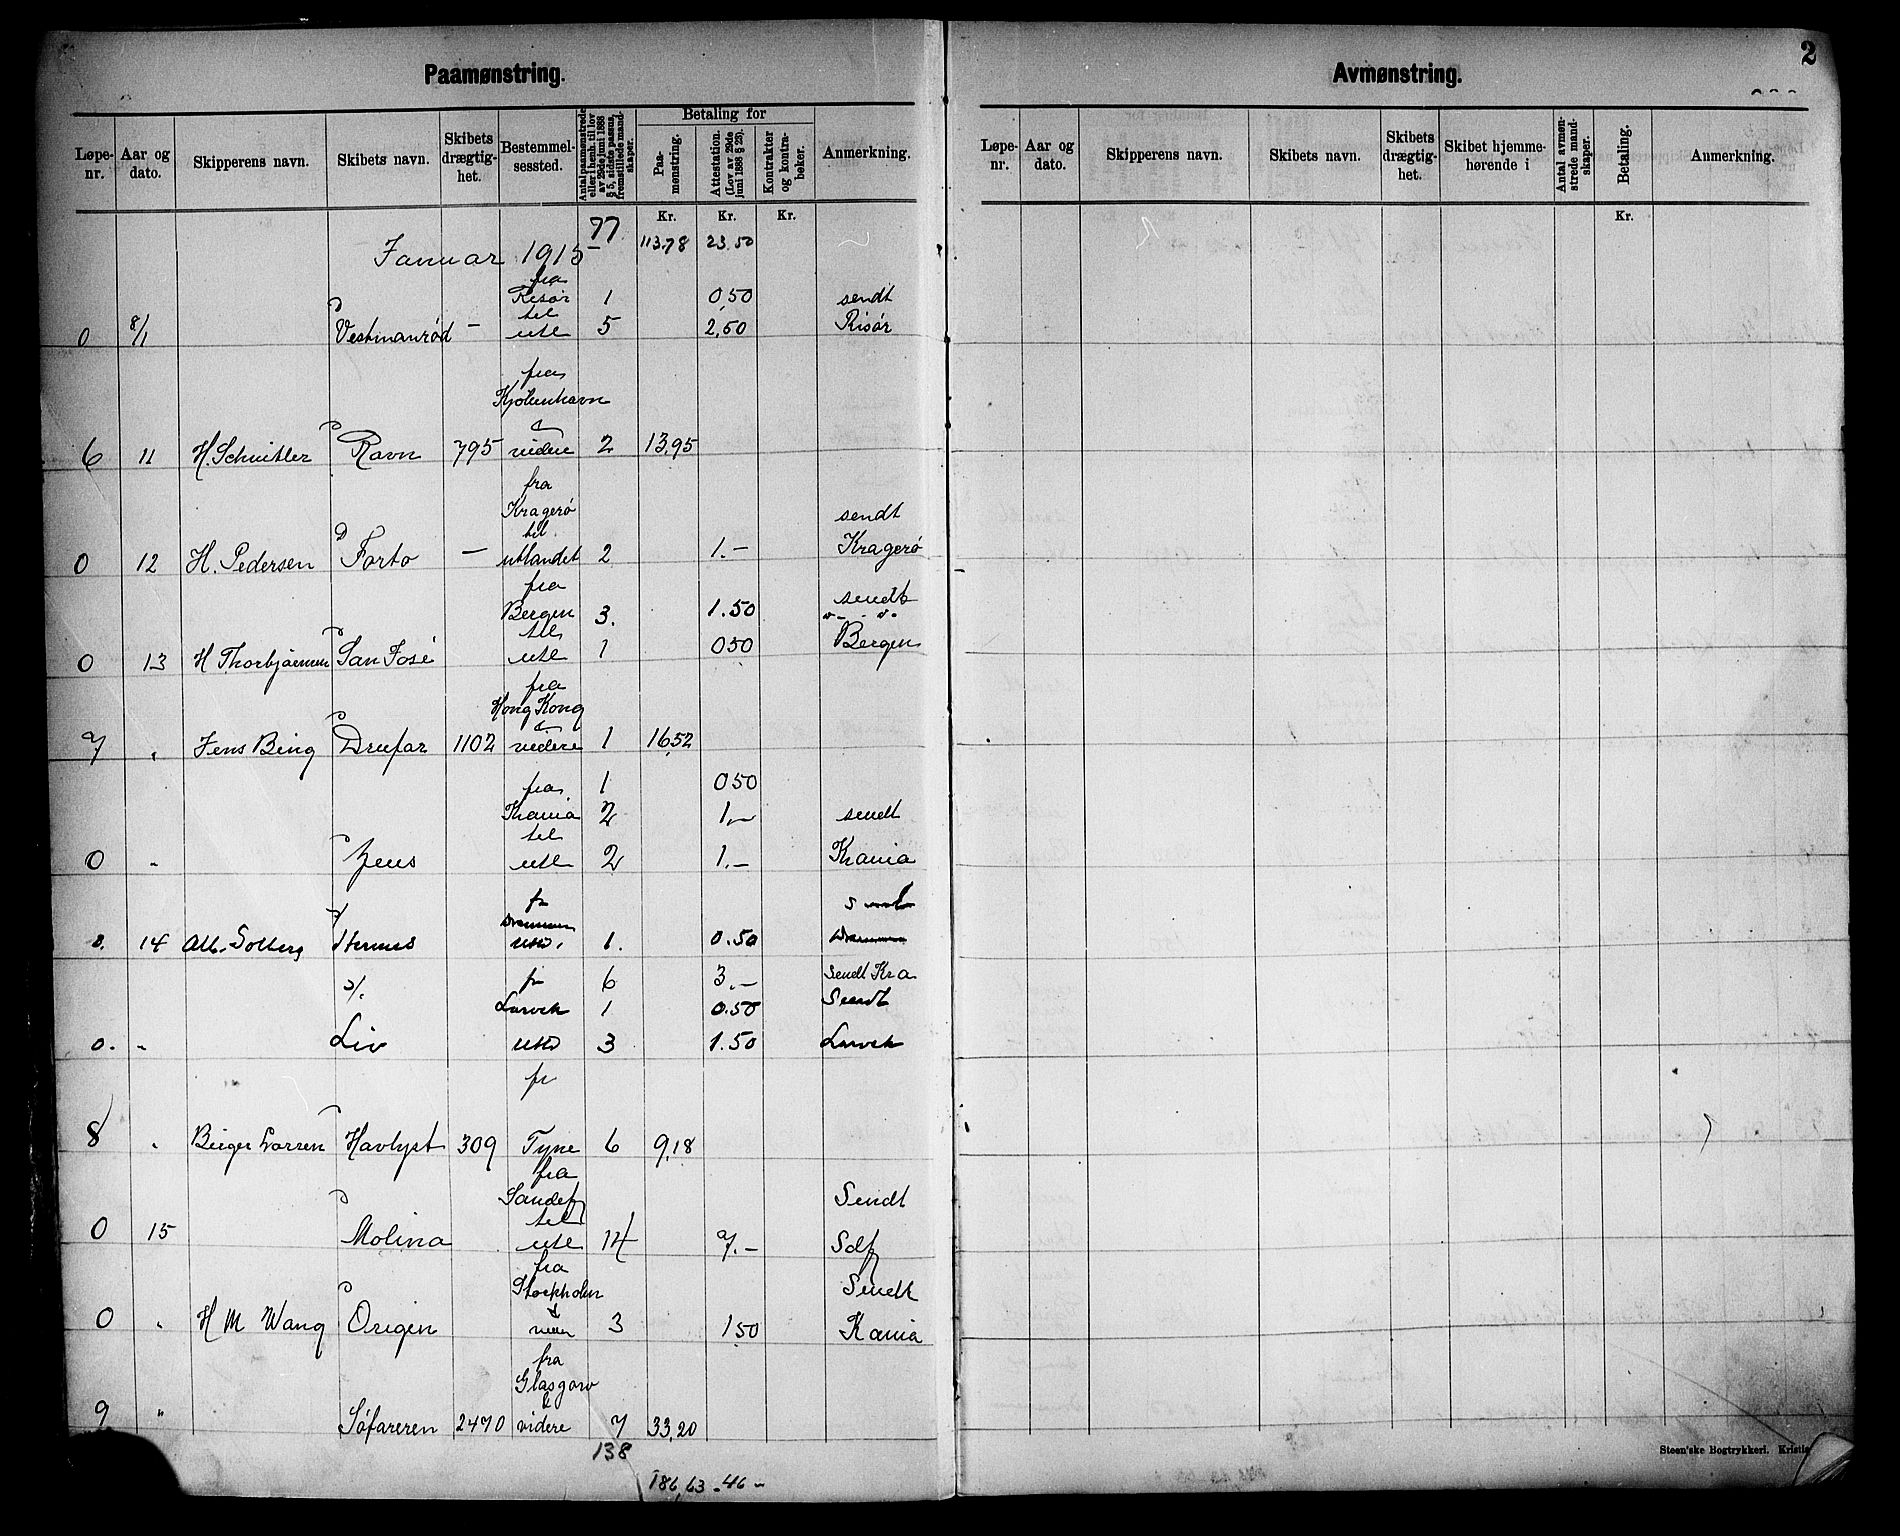 2
Paamønstring.
Løpe-nr. Aar og dato. Skipperens navn. Skibets navn. Skibets drægtig-het. Bestemmel-sessted. Antal paamønstrede eller i henh. til lov av 29de juni 1888 § 5, sidste passus, fremstillede mand-skaper. Betaling for Paa-mønstring. Attestation. (Lov av 29de juni 1888 § 25). Kontrakter og kontra-bøker. Anmerkning.
Kr. Kr. Kr.
77 113,78 23,50
Januar 1915
fra
Risør 1 0,50 sendt
til
0 8/1 Vestmanrød - utl 5 2,50 Risør
fra
Kjøbenhavn
&
6 11 H. Schnitler Ravn 795 videre 2 13,95
fra
Kragerø sendt
til
0 12 H. Pedersen Forto - utlandet 2 1.- Kragerø
fra
Bergen 3. 1.50 sendt
til
0 13 H Thorbjørnsen San José utl 1 050 Bergen
fra
Hong Kong
&
7 " Jens Bing Drufar 1102 videre 1 16,52
fra 1 050
Krania 2 1,- sendt
til
0 " Zeus utl 2 1.- Krania
fr
Drammen
0. 14 Alb. Solberg Hermes utld. 1. 0.50 Drammen
fr 6 3.- sendt Kra
Larvik 1 0.50 Sendt
0. " Liv utld 3 1.50 Larvik
fr
8 " Birger Larsen Havlyst 309 Tyne 6 9,18
fra
Sandefj Sendt
til
0 15 Molina utl 14 7.- Sdfj
fra
Stockholm Sendt
&
0 " H M Wang Origen 3 1,50 Kania
fra
Glasgow
&
9 " Søfareren 2470 videre 7 33,20
138
186,63 - 46 -
Avmønstring.
Løpe-nr. Aar og dato. Skipperens navn. Skibets navn. Skibets drægtig-het. Skibet hjemme-hørende i Antal avmøn-strede mand-skaper. Betaling. Anmerkning.
Kr.
Steen'ske Bogtrykkeri. Kristia